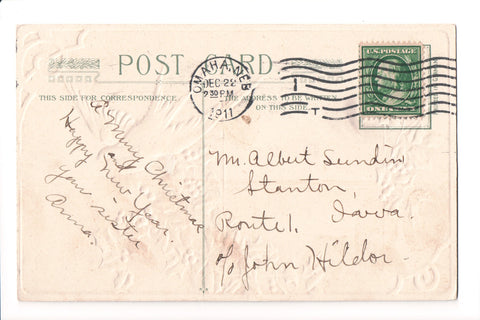 POST CARD
THIS SIDE FOR CORRESPONDENCE
THE ADDRESS TO BE WRITTEN
ON THIS SIDE
OMAHA, NEB.
DEC 22
2 30 PM
1911
1
T
U.S. POSTAGE
A Merry Christmas
and
Happy New Year.
your sister
Anna.
Mr. Albert Sundin
Stanton,
Route 1. Iowa.
c/o John Hildor